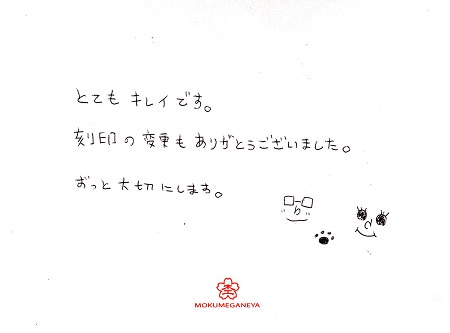 とても キレイ です。
刻印 の 変更も ありがとうございました。
ずっと 大切にします。
MOKUMEGANEYA